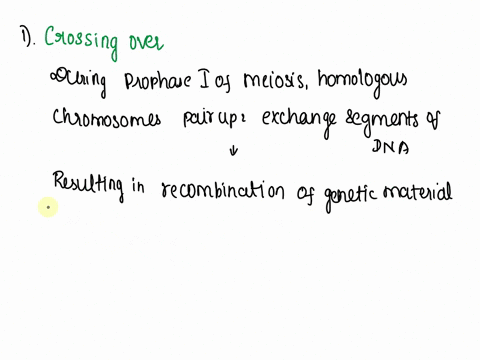 1). Crossing over
During Prophase I of meiosis, homologous
Chromosomes pair up & exchange segments of
DNA
↓
Resulting in recombination of genetic material